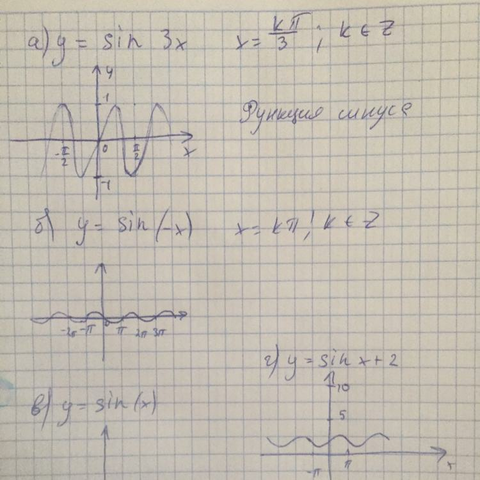 а) y = sin 3x x = kπ/3 ; k ∈ Z
y
1
-π/2 0 π/2 x
-1
Функция синуса
б) y = sin (-x) x = kπ ; k ∈ Z
-2π -π π 2π 3π
г) y = sin x + 2
10
5
-π π x
в) y = sin (x)